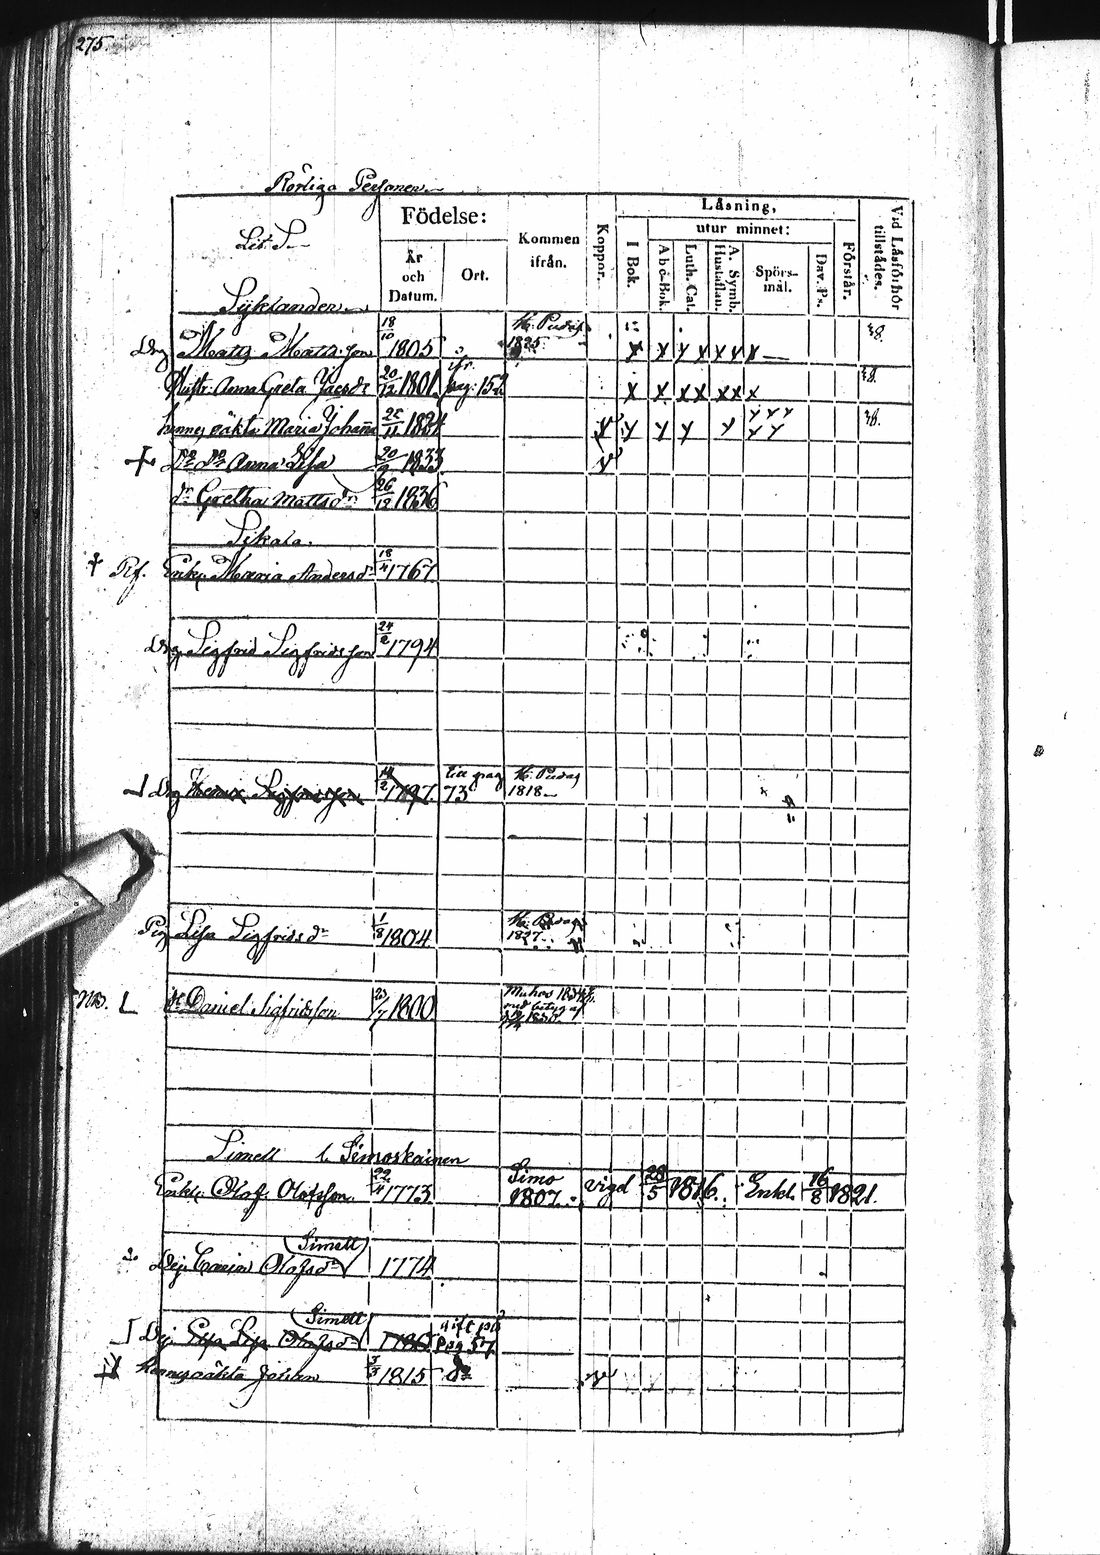 275.
Rörliga Personer
Litt. S.
Födelse:
År och Datum.
Ort.
Kommen ifrån.
Koppor.
Läsning,
I Bok.
utur minnet:
A b c-Bok.
Luth. Cat.
A. Symb. Hustaflan.
Spörs-mål.
Dav. Ps.
Förstår.
Vid Läsförhör tillstädes.
Syklander
Drg Matts Mattsson 18/10 1805 Kr. Pudas 1825 x x x x x x x 38.
Hustr. Anna Greta Jacsdr 20/12 1801 ifr. pag. 152 x x x x x x x 38.
hennes oäkta Maria Johanna 1824 38.
Do Do Anna Lisa 20/9 1833
dr Gretha Mattsdr 26/12 1836
Sikala.
Pf. Enk. Maria Andersdr 18/4 1767
Drg Sigfrid Sigfridsson 24/2 1794
Drg Henric Sigfridsson 14/2 1797 till pag 73 Kr. Pudas 1818
Pig Lisa Sigfridsdr 1/8 1804 Kr. Pudas 1827
NB. L dr Daniel Sigfridsson 23/7 1800 Muhos
Simell l. Simoskainen
Enkl. Olof Olofsson 22/4 1773 Simo 1807. vigd 28/5 1816. Enkl. 16/8 1821.
Simell
Pig. Carin Olofsdr 1774
Simell
Pig. Lisa Olofsdr 1786 gift på pag 57
hennes oäkta Johan 3/3 1815 do